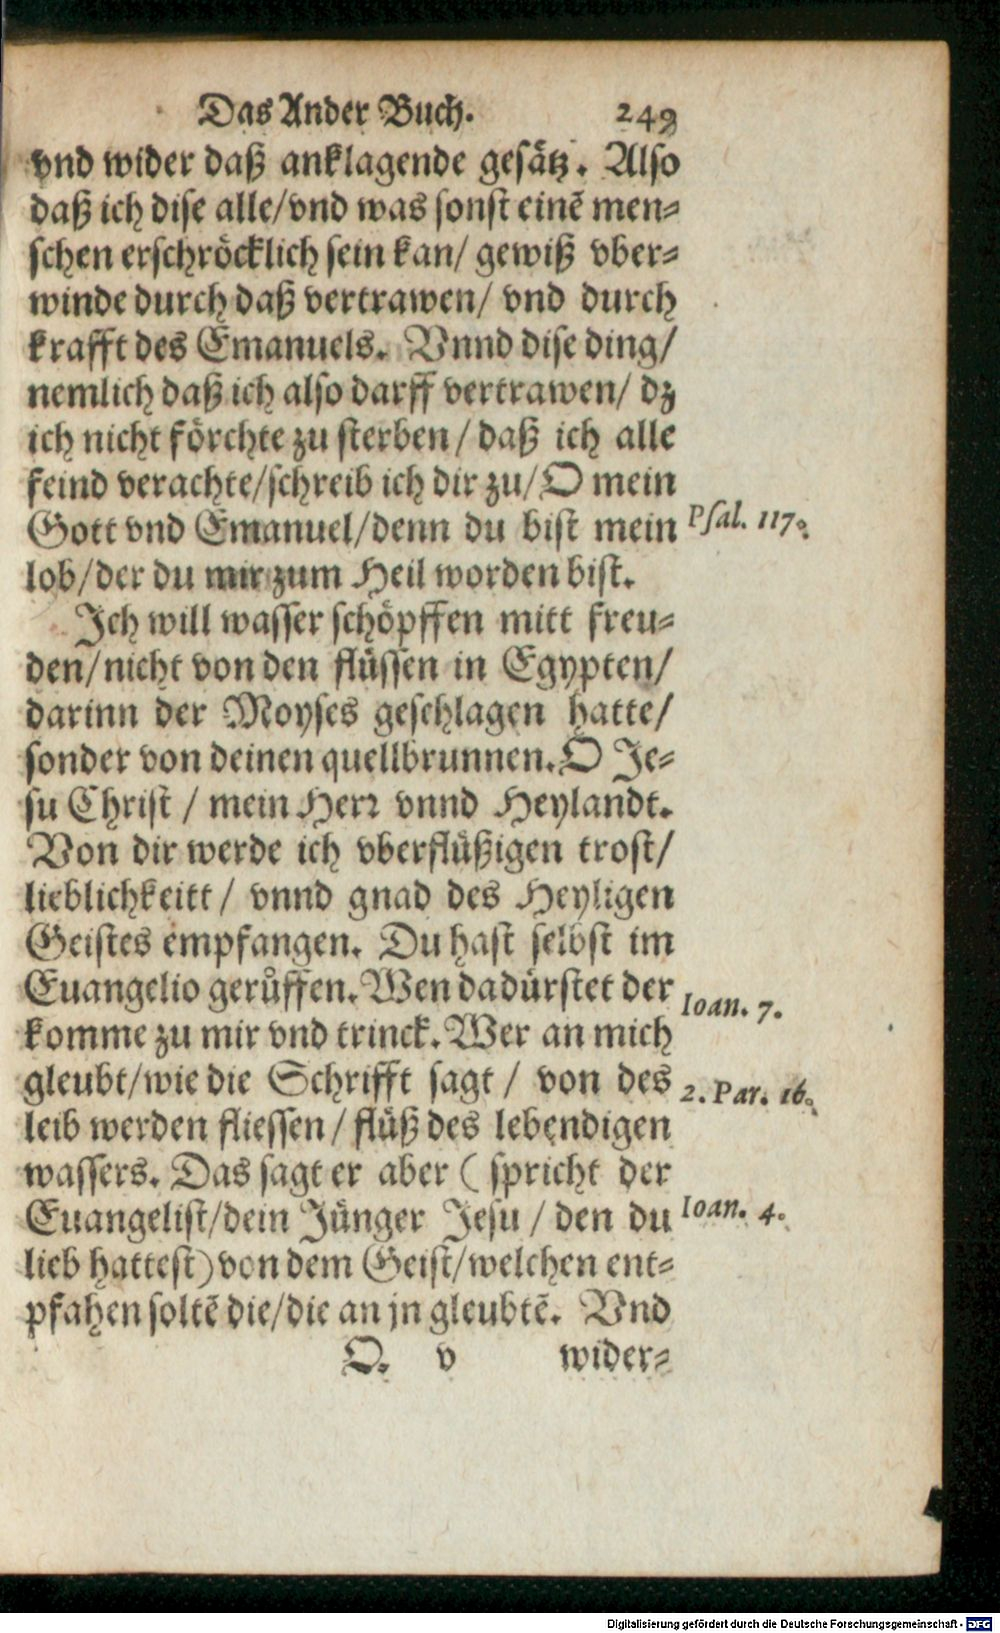 Das Ander Buch. 249
vnd wider daß anklagende gesätz. Also
daß ich dise alle/vnd was sonst einẽ men-
schen erschröcklich sein kan/ gewiß vber-
winde durch daß vertrawen/ vnd durch
krafft des Emanuels. Vnnd dise ding/
nemlich daß ich also darff vertrawen/ dz
ich nicht förchte zu sterben/ daß ich alle
feind verachte/schreib ich dir zu/O mein
Gott vnd Emanuel/denn du bist mein
Psal. 117.
lob/der du mir zum Heil worden bist.
Ich will wasser schöpffen mitt freu-
den/nicht von den flüssen in Egypten/
darinn der Moyses geschlagen hatte/
sonder von deinen quellbrunnen. O Je-
su Christ / mein Herr vnnd Heylandt.
Von dir werde ich vberflüßigen trost/
lieblichkeitt/ vnnd gnad des Heyligen
Geistes empfangen. Du hast selbst im
Euangelio gerůffen. Wen da dürstet der
Ioan. 7.
komme zu mir vnd trinck. Wer an mich
gleubt/wie die Schrifft sagt / von des
2. Par. 16.
leib werden fliessen/ flüß des lebendigen
wassers. Das sagt er aber ( spricht der
Euangelist/dein Jünger Jesu / den du
Ioan. 4.
lieb hattest) von dem Geist/welchen ent-
pfahen soltẽ die/die an jn gleubtẽ. Vnd
Q. v wider-
Digitalisierung gefördert durch die Deutsche Forschungsgemeinschaft - DFG